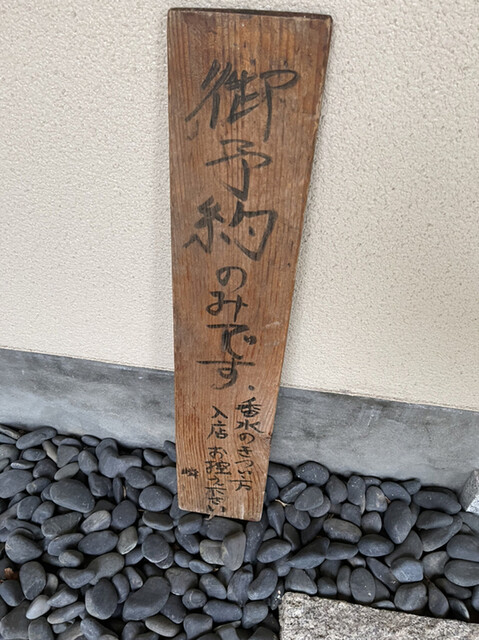 御予約のみです.
香水のきつい方
入店お控え下さい